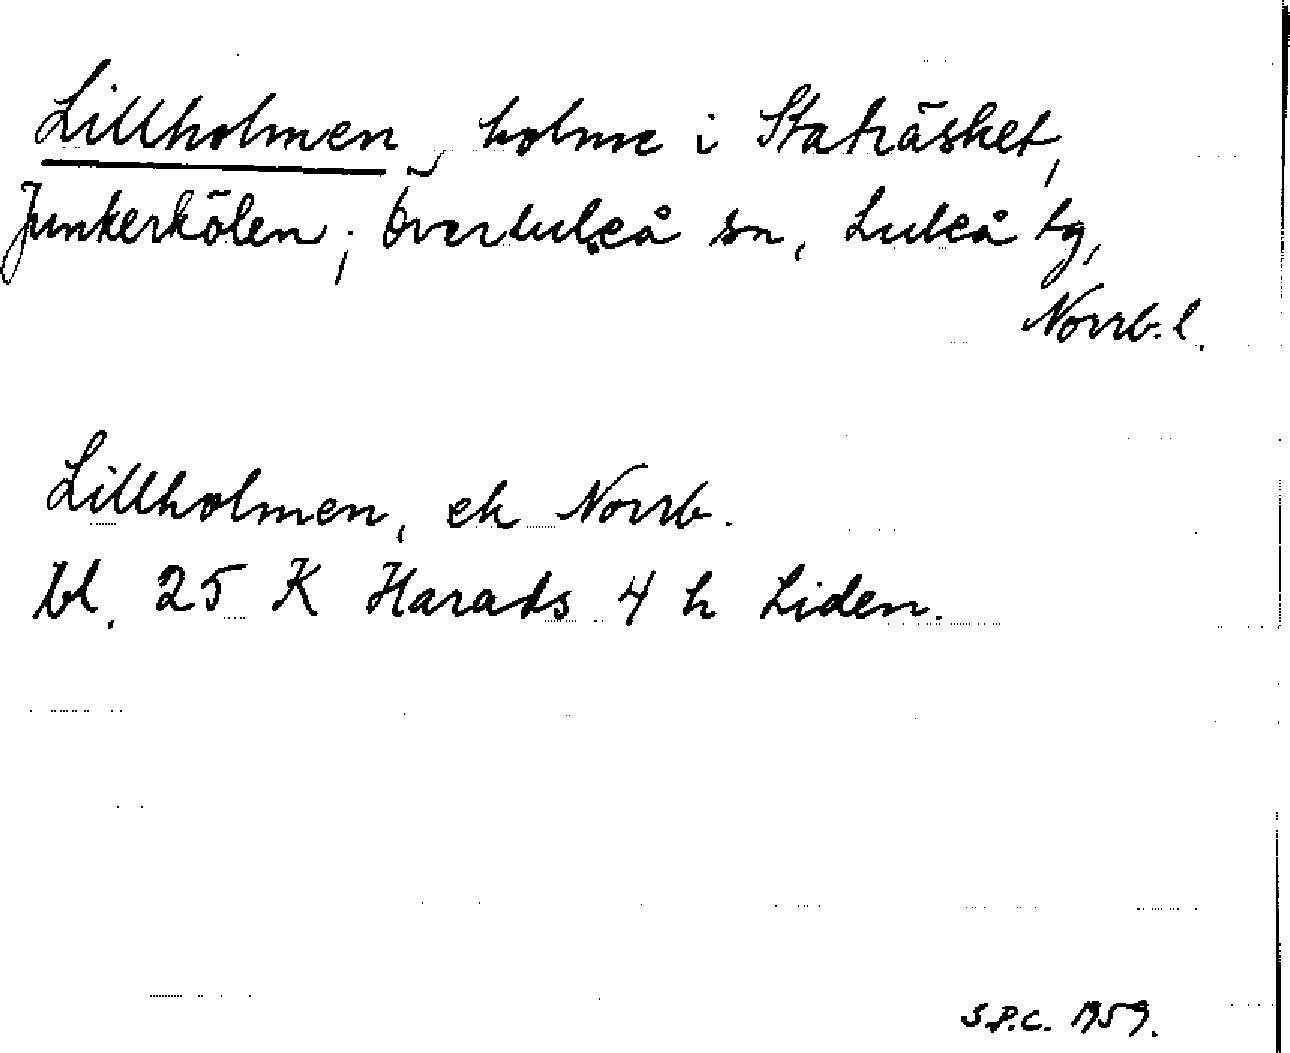 Lillholmen, holme i Staträsket,
Junkerkölen, Överluleå sn, Luleå tg,
Norrb. l.
Lillholmen, ek Norrb.
bl. 25 K Harads 4 h Liden.
S.P.C. 1959.